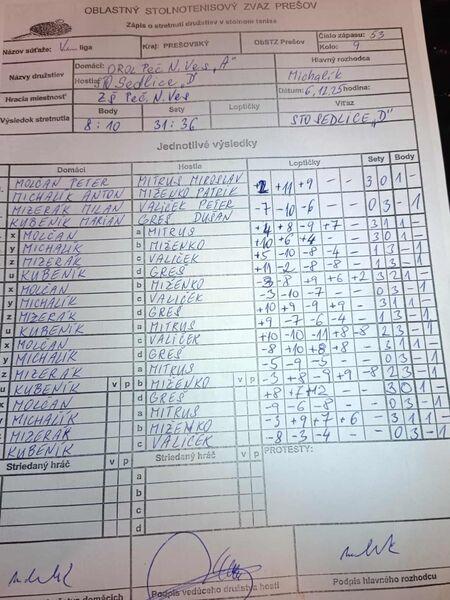 OBLASTNÝ STOLNOTENISOVÝ ZVÄZ PREŠOV
Zápis o stretnutí družstiev v stolnom tenise
Názov súťaže: V. liga Kraj: PREŠOVSKÝ ObSTZ Prešov Číslo zápasu: 53
Kolo: 9
Názvy družstiev Domáci: OROL PEČ. N. VES „A" Hlavný rozhodca
Hostia: STO SEDLICE „D" Michalík
Hracia miestnosť ZŠ PEČ. N. VES Dátum: 6.12.25 hodina:
Výsledok stretnutia Body Sety Loptičky Víťaz
8:10 31:36 STO SEDLICE „D"
Jednotlivé výsledky
Domáci Hostia Loptičky Sety Body
MOLČAN PETER MITRUS MIROSLAV
MICHALÍK ANTON MIŽENKO PATRIK +11 +9 – – 3 0 1 –
MIZERÁK MILAN VALIČEK PETER
KUBENÍK MARIÁN GREŠ DUŠAN -7 -10 -6 – – 0 3 – 1
x MOLČAN a MITRUS +4 +8 -9 +7 – 3 1 1 –
y MICHALÍK b MIŽENKO +10 +6 +4 – – 3 0 1 –
z MIZERÁK c VALIČEK +5 -10 -8 -4 – 1 3 – 1
u KUBENÍK d GREŠ +11 -2 -8 -8 – 1 3 – 1
x MOLČAN b MIŽENKO -8 +9 +6 +2 3 2 1 –
y MICHALÍK c VALIČEK -3 -10 -7 0 3 – 1
z MIZERÁK d GREŠ +10 +9 -9 +9 – 3 1 1 –
u KUBENÍK a MITRUS +9 -7 -6 -4 – 1 3 – 1
x MOLČAN c VALIČEK +10 -10 -11 +8 -8 2 3 – 1
y MICHALÍK d GREŠ -8 +10 +8 +8 – 3 1 1 –
z MIZERÁK a MITRUS -5 -9 -3 – – 0 3 – 1
u KUBENÍK b MIŽENKO -3 +8 -9 +9 -8 2 3 – 1
x MOLČAN d GREŠ +8 +7 +12 – – 3 0 1 –
y MICHALÍK a MITRUS -9 -6 -8 – – 0 3 – 1
z MIZERÁK b MIŽENKO -3 +9 +7 +6 – 3 1 1 –
KUBENÍK c VALIČEK -8 -3 -4 – – 0 3 – 1
Striedaný hráč v p Striedaný hráč v p PROTESTY:
a
b
c
d
Podpis vedúceho družstva hostí
Podpis hlavného rozhodcu